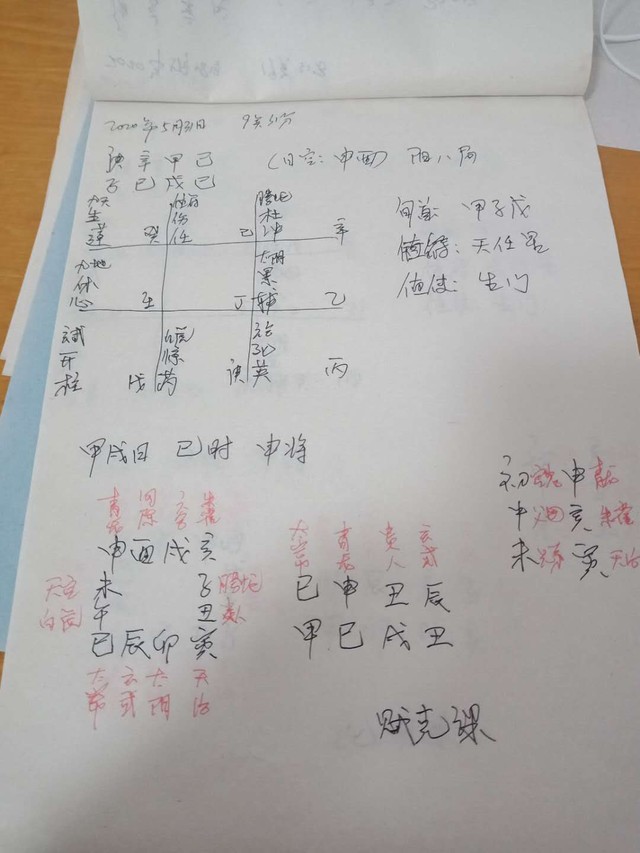 2020年5月31日 9点51分
庚辛甲己
子巳戌巳
(日空:申酉) 阳八局
旬首: 甲子戊
值符: 天任星
值使: 生门
九天 值符 腾蛇
生 伤 杜
蓬 癸 任 己 冲 辛
九地 太阴
休 景
心 壬 丁 辅 乙
玄武 白虎 六合
开 惊 死
柱 戊 芮 庚 英 丙
甲戌日 巳时 申将
青龙 勾陈 六合 朱雀
申酉戌亥
天空 未 子 腾蛇
白虎 午 丑 贵人
巳辰卯寅
太常 玄武 太阴 天后
太常 青龙 贵人 玄武
巳申丑辰
甲巳戌丑
初 申 青龙
中 亥 朱雀
末 寅 天后
贼克课